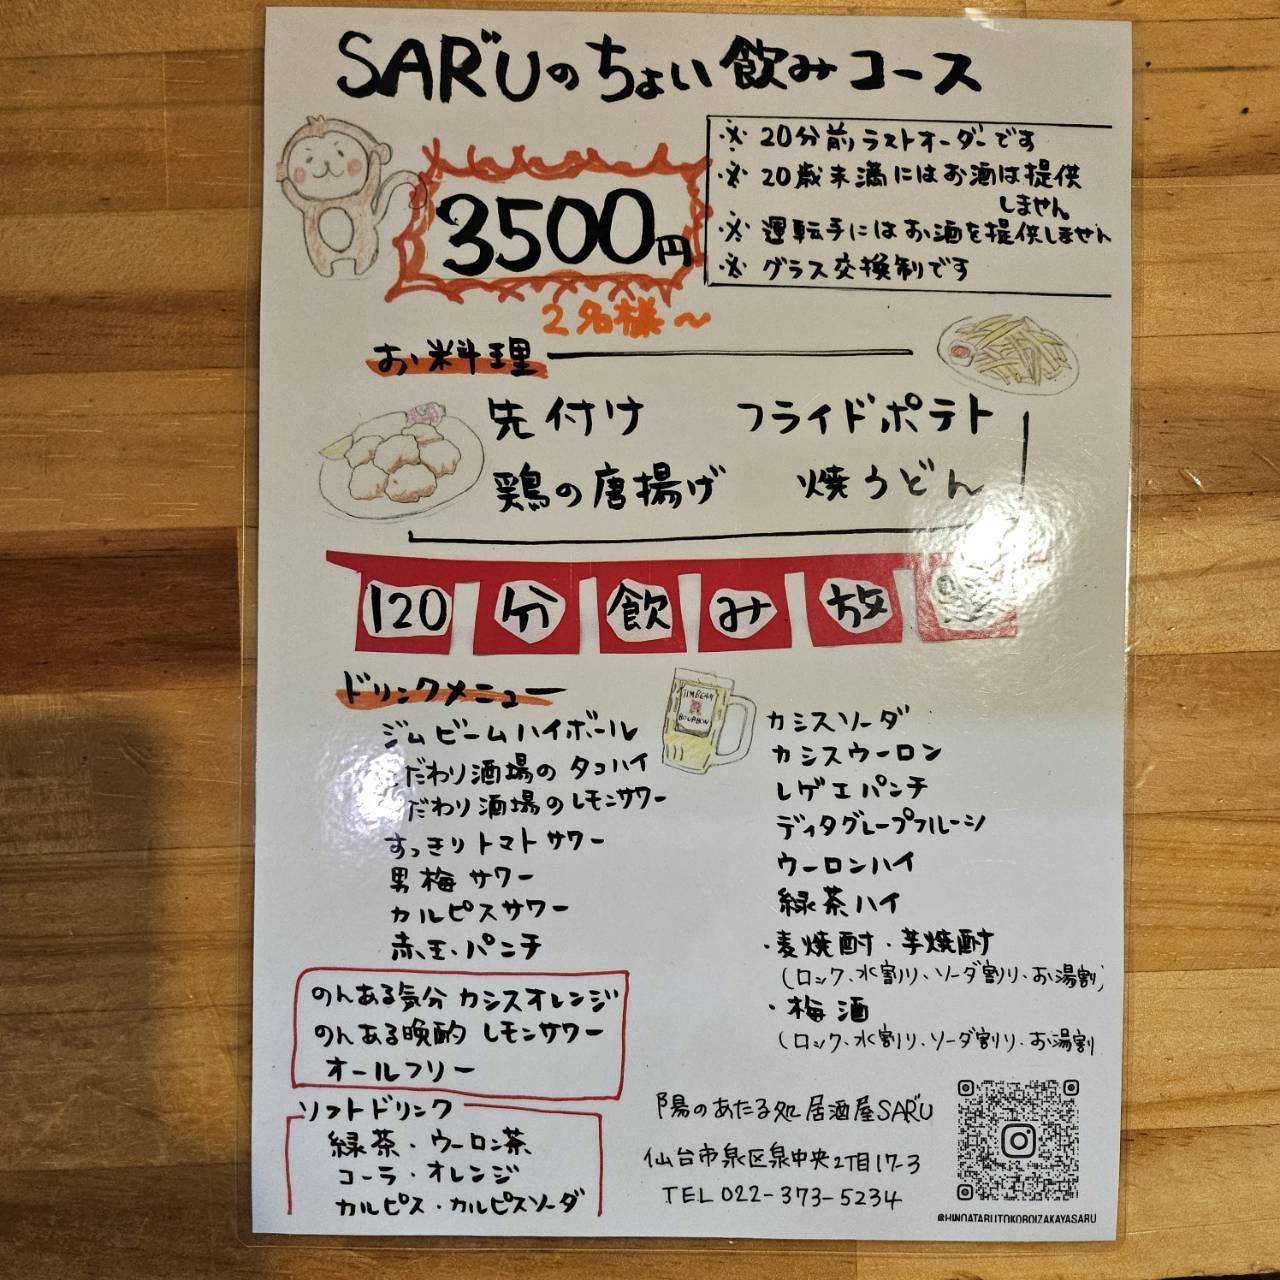 SARUのちょい飲みコース
3500円
2名様～
※ 20分前ラストオーダーです
※ 20歳未満にはお酒は提供
しません
※ 運転手にはお酒を提供しません
※ グラス交換制です
お料理
先付け フライドポテト
鶏の唐揚げ 焼うどん
120分飲み放
ドリンクメニュー
JIM BEAM
BOURBON
ジムビームハイボール
だわり酒場のタコハイ
だわり酒場のレモンサワー
すっきりトマトサワー
男梅サワー
カルピスサワー
赤玉・パンチ
カシスソーダ
カシスウーロン
レゲエパンチ
ディタグレープフルーツ
ウーロンハイ
緑茶ハイ
・麦焼酎・芋焼酎
(ロック、水割り、ソーダ割り、お湯割)
・梅酒
(ロック、水割り、ソーダ割り、お湯割
のんある気分 カシスオレンジ
のんある晩酌 レモンサワー
オールフリー
ソフトドリンク
緑茶・ウーロン茶
コーラ・オレンジ
カルピス・カルピスソーダ
陽のあたる処 居酒屋SARU
仙台市泉区泉中央2丁目17-3
TEL 022-373-5234
@HINOATARUTOKOROIZAKAYASARU